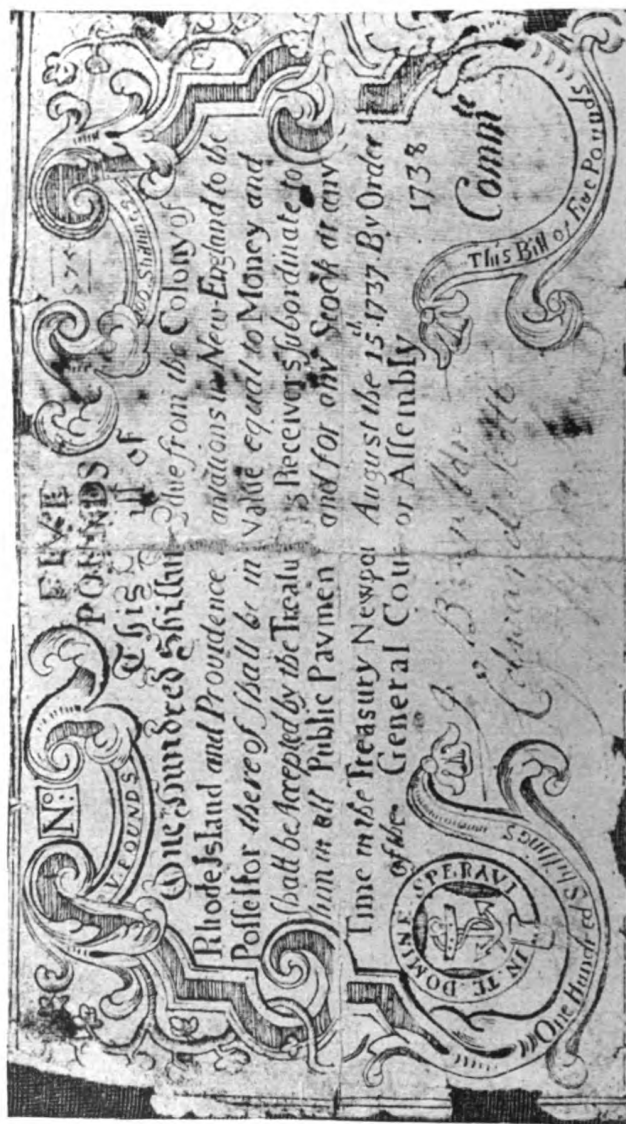 Nº:
FIVE
POUNDS
V. POUNDS
100. Shillings
This ll of
One Hundred Shillin due from the Colony of
Rhode Island and Providence antations in New-England to the
Poſſeſſor thereof ſhall be in Value equal to Money and
ſhall be Accepted by the Treaſu s Receivers ſubordinate to
him in all Public Paymen and for any Stock at any
Time in the Treasury Newpor August the 15th. 1737 By Order
of the General Cour or Aſſembly 1738
IN. TE. DOMINE. SPERAVI
One Hundred Shillings
Edward Scott
Commte
This Bill of Five Pounds